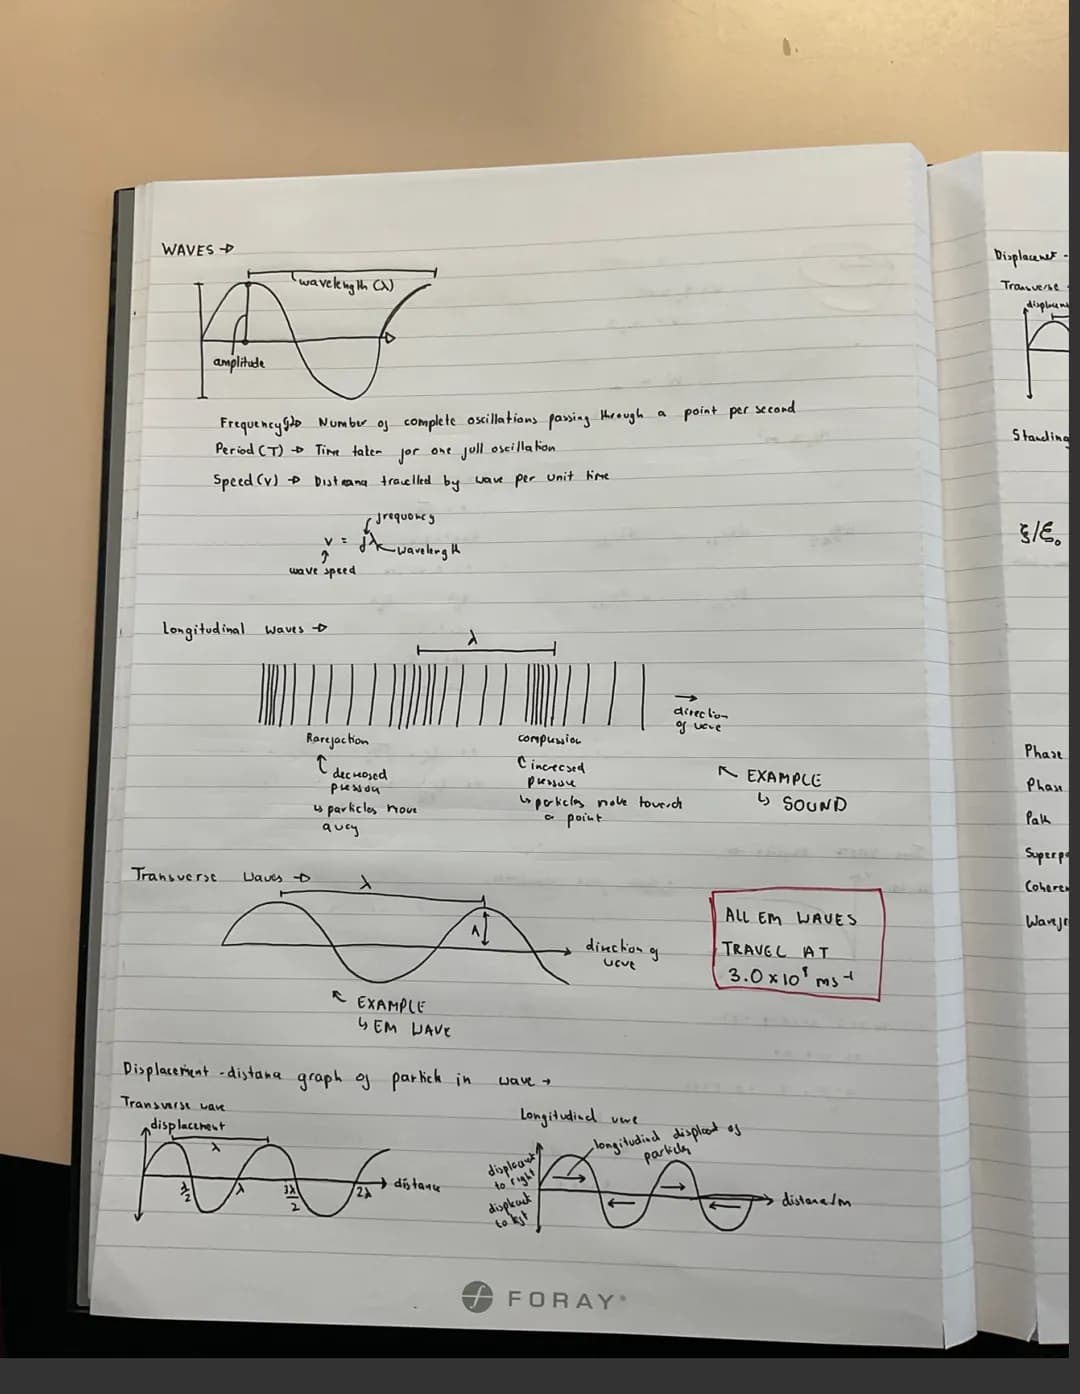 WAVES →
wavelength (λ)
amplitude
Frequency(f)→ Number of complete oscillations passing through a point per second
Period (T) → Time taken for one full oscillation
Speed (v) → Distance travelled by wave per unit time
frequency
v = fλ
wavelength
wave speed
Longitudinal waves →
λ
→
direction
of wave
Rarefaction
↑ decreased
pressure
↳ particles move
away
compression
↑ increased
pressure
↳ particles move towards
a point
↖ EXAMPLE
↳ SOUND
Transverse waves →
λ
A
direction of
wave
↖ EXAMPLE
↳ EM WAVE
ALL EM WAVES
TRAVEL AT
3.0 x 10⁸ ms⁻¹
Displacement - distance graph of particle in wave →
Transverse wave
displacement
λ
λ/2
λ
3λ/2
2λ
distance
Longitudinal wave
longitudinal displacement of
particles
displacement
to right
displacement
to left
distance/m
FORAY
Displacement -
Transverse
displacem
Standing
ξ/ξ₀
Phase
Phase
Path
Superpo
Coheren
Wavefr